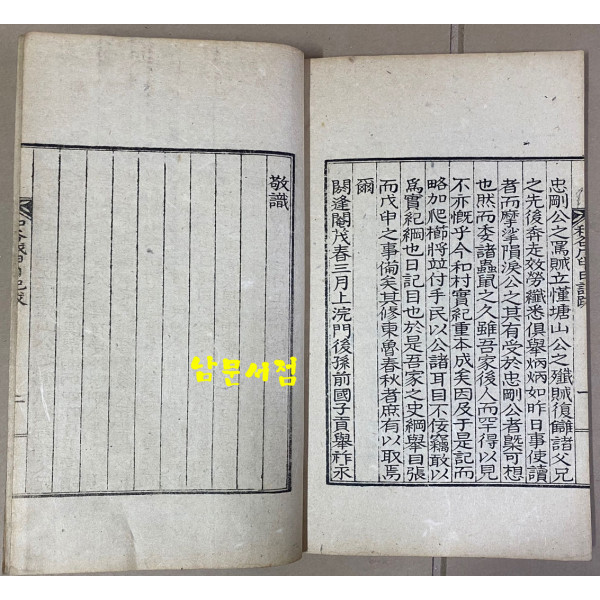 忠剛公之罵賊立慬塘山公之殲賊復讎諸父兄
之先後奔走效勞纖悉俱舉炳炳如昨日事使讀
者而摩挲隕淚公之其有受於忠剛公者槩可想
也然而委諸蟲鼠之久雖吾家後人而罕得以見
不亦慨乎今和村實紀重本成矣因及于是記而
略加爬櫛將竝付手民以公諸耳目不佞竊敢以
爲實紀綱也日記目也於是吾家之史綱擧目張
而戊申之事備矣其修東魯春秋者庶有以取焉
爾
閼逢閹茂春三月上浣門後孫前國子貢擧柞永
敬識
남문서점